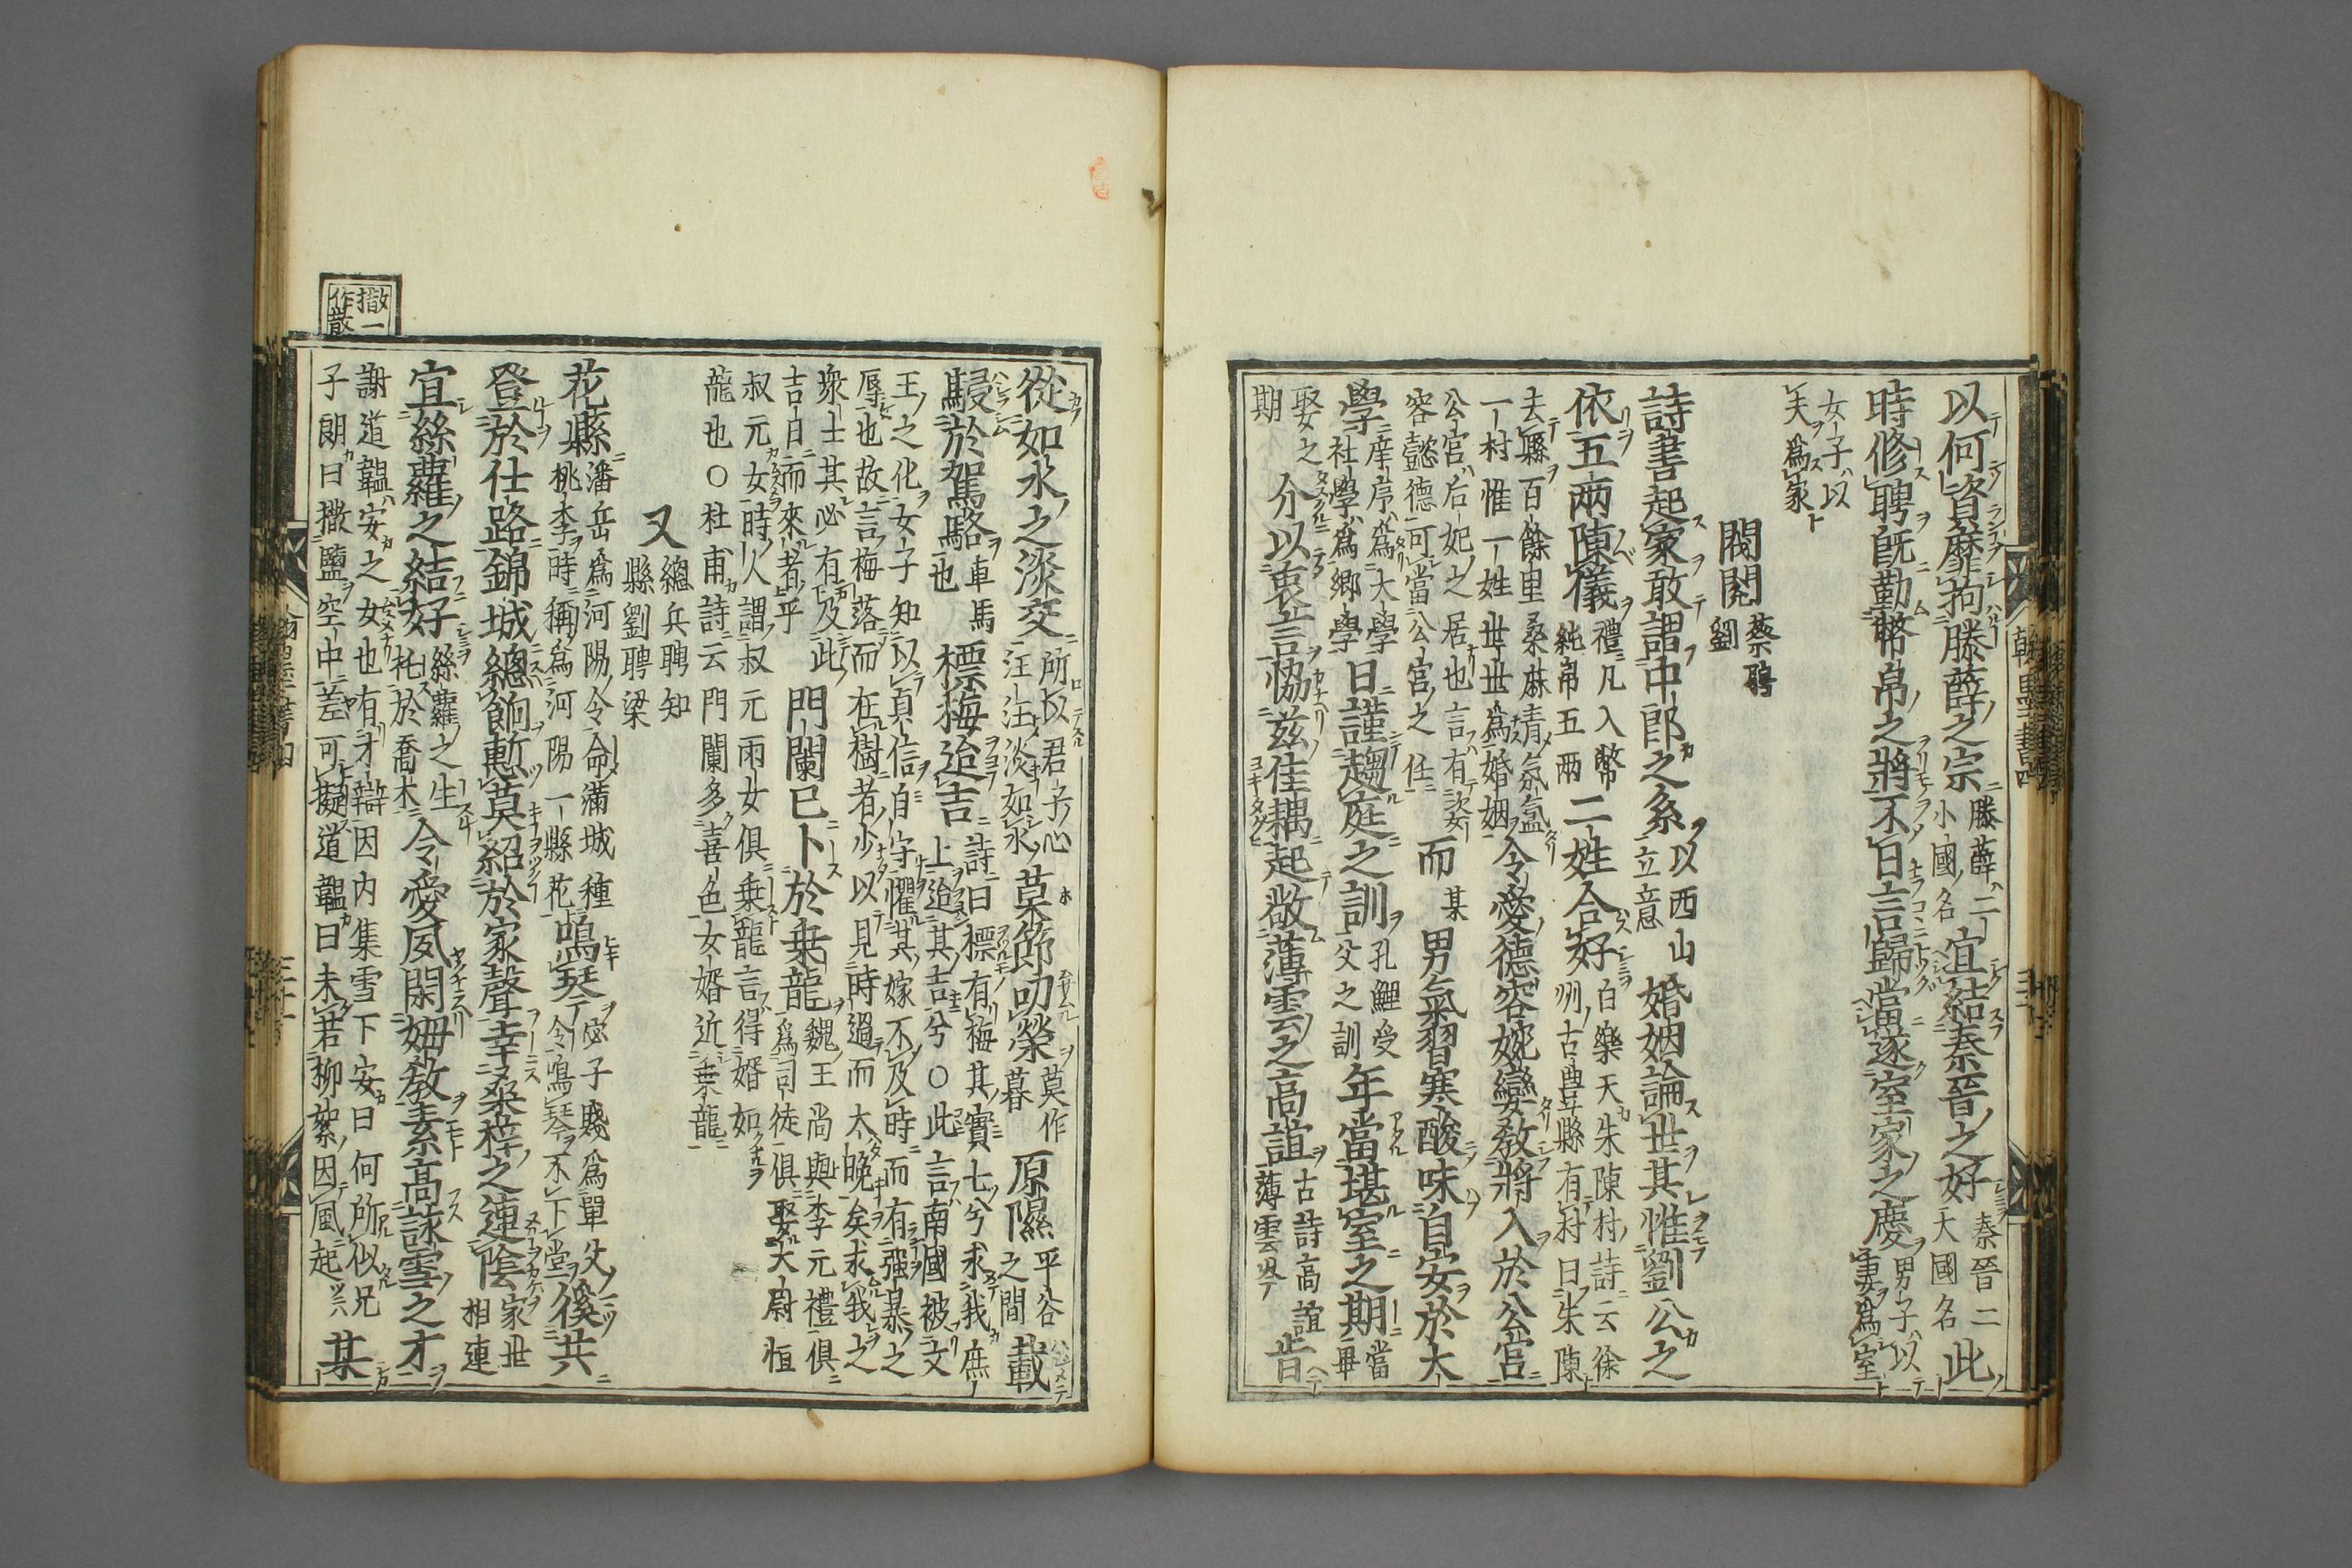 以何資靡拘滕薛之宗滕薛二小國名宜結秦晉之好秦晉二大國名此
時修聘旣勤幣帛之將不日言歸當遂室家之慶男子以妻爲室
女子以夫爲家
閥閱蔡聘劉
詩書起家敢謂中郎之系以西山立意婚姻論世其惟劉公之
依五兩陳儀禮凡入幣純帛五兩二姓合好白樂天朱陳村詩云徐州古豊縣有村曰朱陳
去縣百餘里桑麻青氛氳一村惟一姓世世爲婚姻令愛德容婉孌敎將入於公宮
公宮后妃之居也言有姿容懿德可當公宮之任而某男氣習寒酸味自安於大
學庠序爲大學社學爲鄉學日謹趨庭之訓孔鯉受父之訓年當堪室之期當畢
娶之期分以衷言協茲佳耦起敝薄雲之高誼古詩高誼薄雲岑肯
翰墨書四
從如水之淡交所以君子心汪汪淡如水莫節叨榮莫作暮原隰平谷之間載
駸於駕駱車馬也標梅迨吉詩曰標有梅其實七兮求我庶上迨其吉兮○此言南國被文
王之化女子知以貞信自守懼其嫁不及時而有强暴之
辱也故言梅落而在樹者少以見時過而太晚矣求我之
衆士其必有及此門闌已卜於乗龍魏王尚與李元禮俱爲司徒俱娶大尉恒
吉日而來者乎
叔元女時人謂叔元兩女俱乗龍言得婿如
龍也○杜甫詩云門闌多喜色女婿近乗龍
又總兵聘知縣劉聘梁
花縣潘岳爲河陽令命滿城種桃李時稱爲河陽一縣花鳴琴宓子賤爲單父令鳴琴不下堂僕共
登於仕路錦城總餉慙莫紹於家聲幸桑梓之連陰家世相連
宜絲蘿之結好絲蘿之生托於喬木令愛夙閑姆敎素高詠雪之才
謝道韞安之女也有才辯因内集雪下安曰何所似兄
子朗曰撒鹽空中差可擬道韞曰未若柳絮因風起某
撒一作散